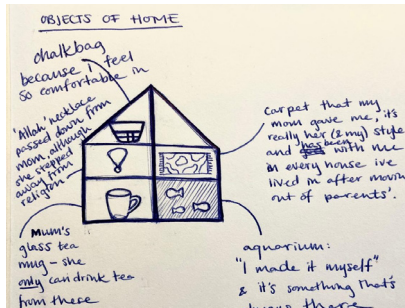 OBJECTS OF HOME
chalkbag
because i feel
so comfortable in
'Allah' necklace
passed down from
mom, although
she stepped
away from
religion
Mum's
glass tea
mug – she
only can drink tea
from these
carpet that my
mom gave me, 'it's
really her (& my) style
and has been with me
in every house ive
lived in after moving
out of parents'.
aquarium:
"I made it myself"
& it's something that's
always there